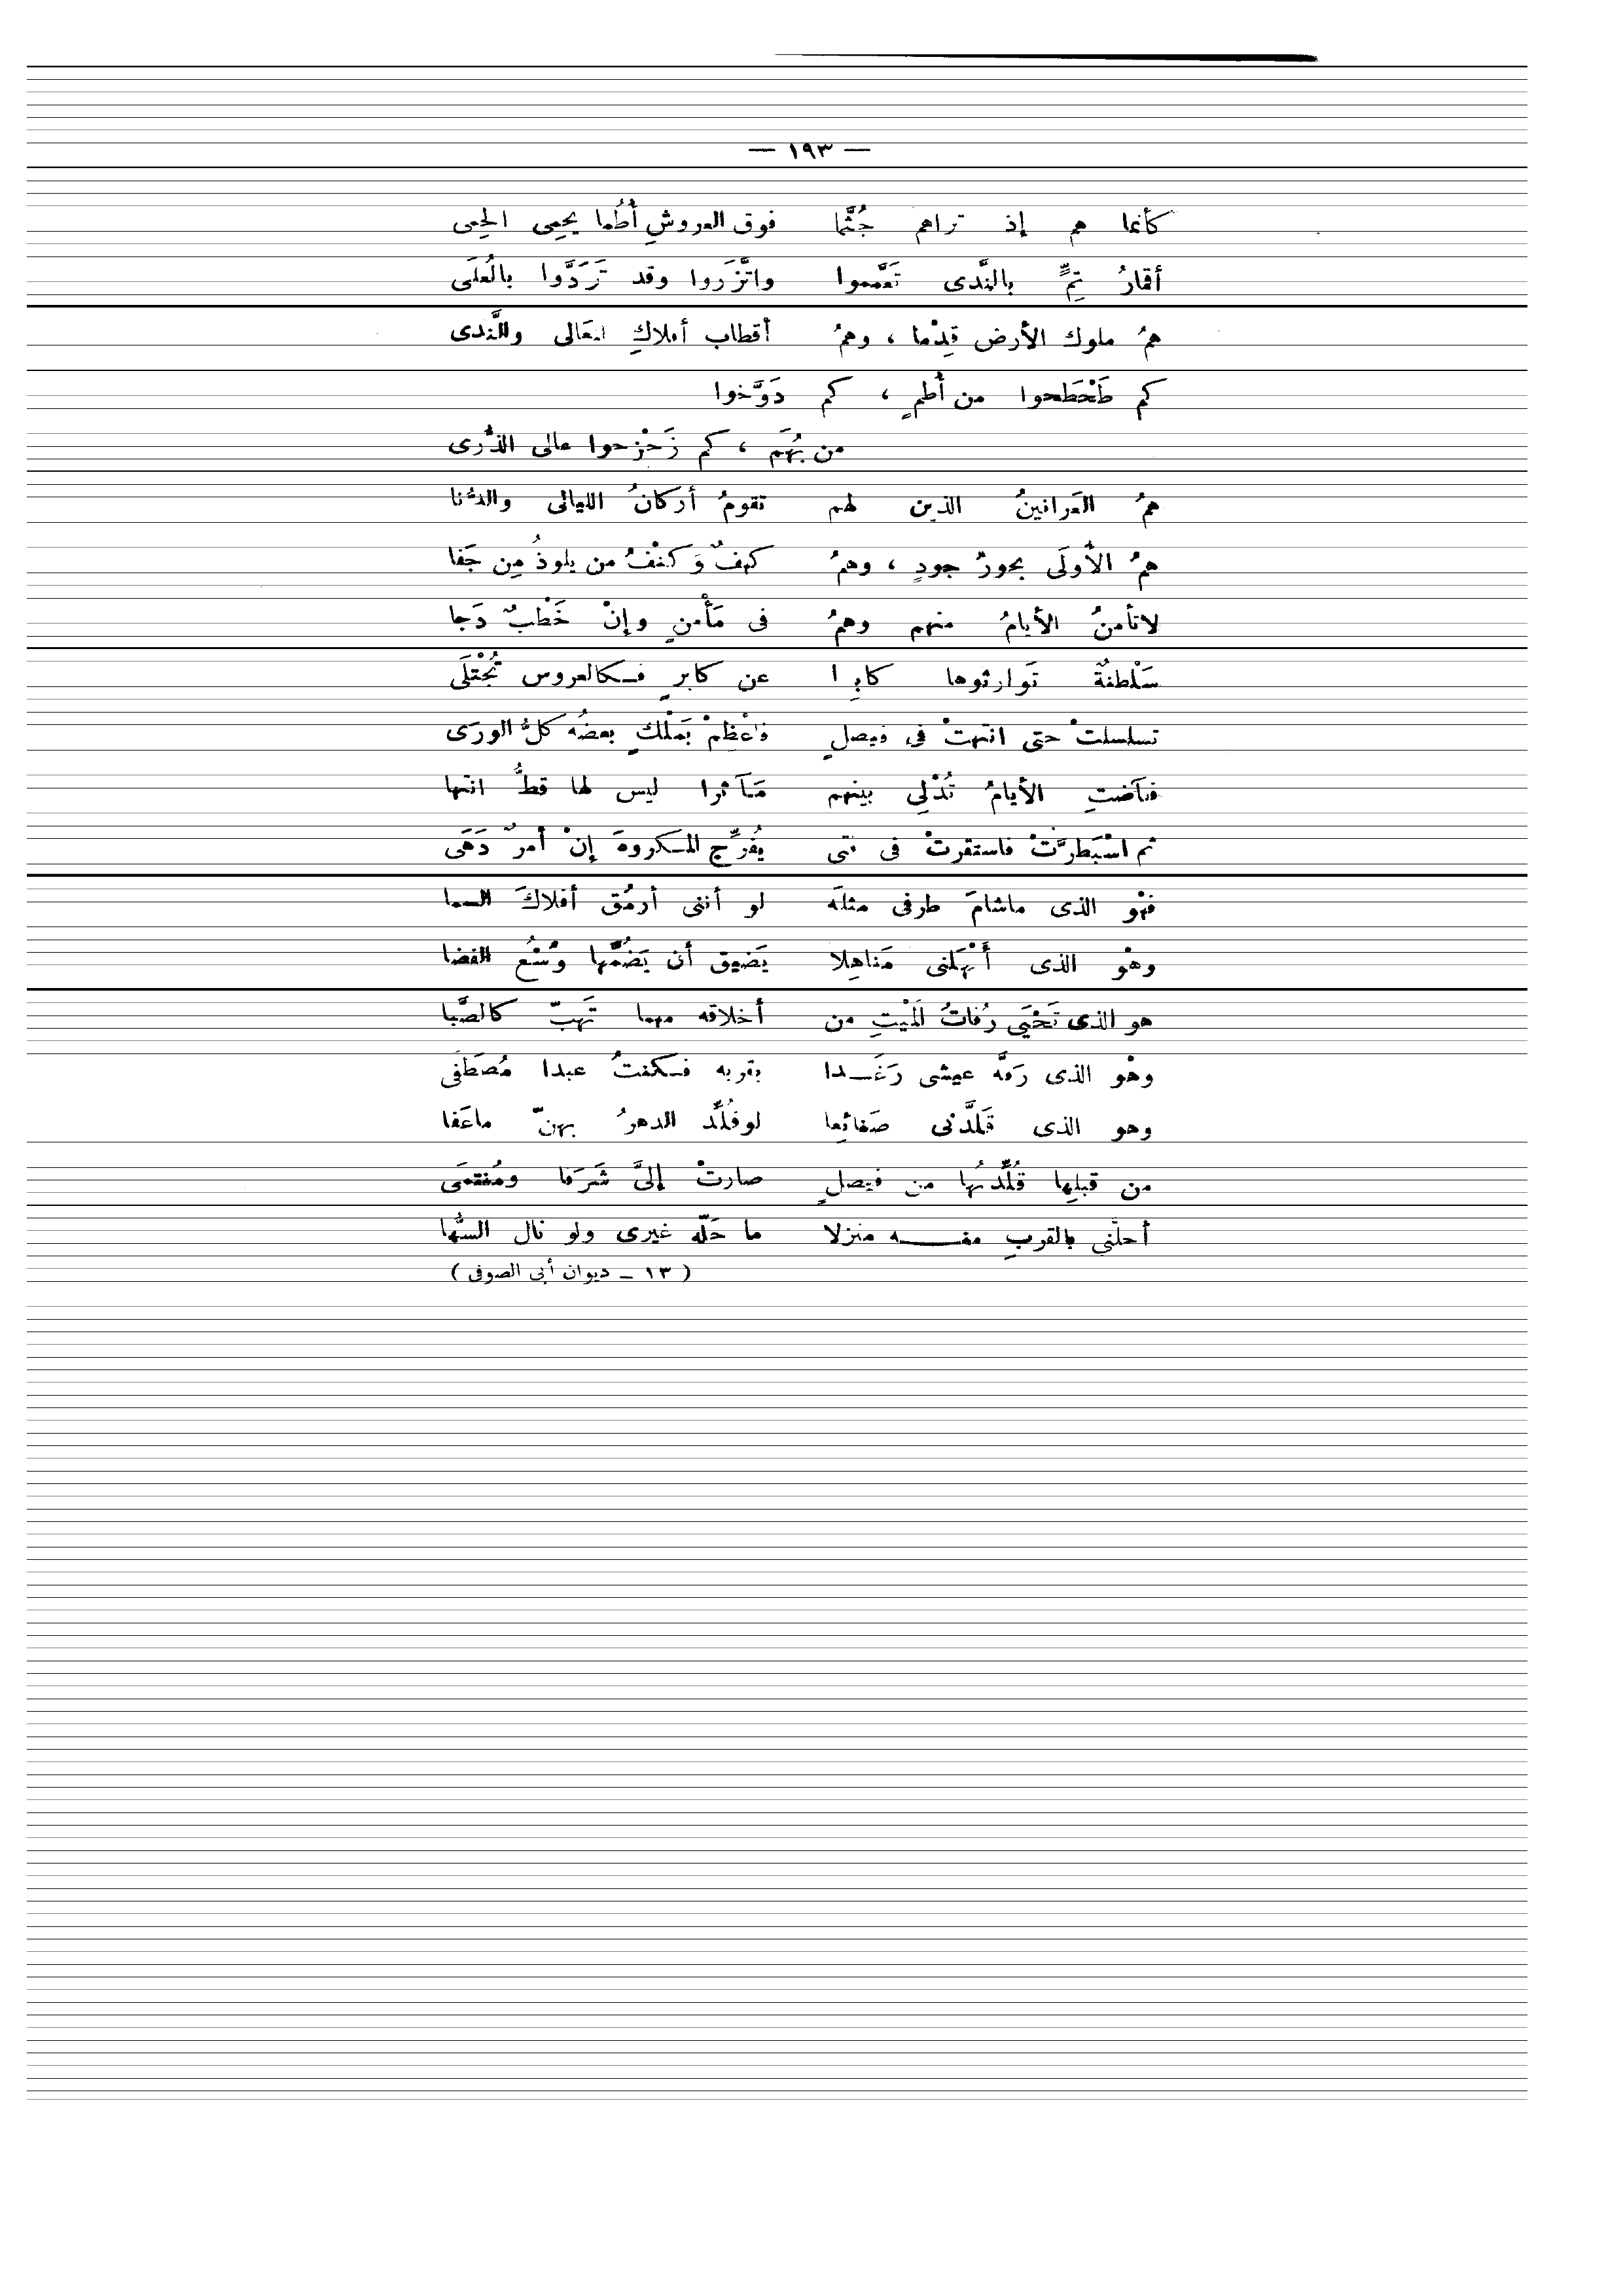 — ١٩٣ —
كأنما هم إذ تراهم جُثَّما فوق العروشِ أُطُما يحمِى الحِمى
أقمارُ تِمٍّ بالنَّدى تَعَّمموا واتَّزَروا وقد تَرَدَّوا بالُعلَى
همُ ملوك الأرض قِدْما ، وهمُ أقطاب أفلاكِ المعَالى والنَّدى
كم طَحْطَحوا من أُطمٍ ، كم دَوَّخوا
من بُهَم ، كم زَحْزحوا عالى الذُّرى
همُ العَرانينُ الذين لهم تقومُ أركانُ الليالى والدُّنا
همُ الأُولَى بحورُ جودٍ ، وهمُ كهفٌ وَكنْفُ من يلوذُ مِن جَفا
لا تأمنُ الأيامُ منهم وهمُ فى مَأْمنٍ وإنْ خَطْبٌ دَجا
سَلْطنةٌ تَوارثوها كابِرا عن كابرٍ فـكالعروس تُجْتَلَى
تسلسلتْ حتى انتهتْ فى فيصلٍ فأعْظِمْ بَملْكٍ بعضُه كلُّ الورَى
فآضتِ الأيامُ تُدْلِى بينهم مَـآثرا ليس لها قطُّ انتها
ثم اسْبَطرَّتْ فاستقرتْ فى فتى يُفرِّج المـكروهَ إنْ أمرٌ دَهَى
فهْو الذى ماشامَ طرفى مثلَه لو أننى أرمُق أفلاكَ السما
وهْو الذى أَنْهلَنى مَناهِلا يَضيق أن يَضُمَّها وُسْعُ الفضا
هو الذى تَحْيَى رُفاتُ المَيْتِ من أخلاقه مهما تَهبّ كالصَّبا
وهْو الذى رَفَّه عيشى رَغَـدا بقربه فـكنتُ عبدا مُصطَفَى
وهو الذى قَلدَّنى صَنائِعا لوقُلِّد الدهرُ بهنّ ماعَفا
من قبلِها قُلِّدتُها من فيصلٍ صارتْ إلىَّ شَرَفا ومُنتمَى
أحلّنى بالقربِ منـه منزلا ما حَلّه غيرى ولو نال السُّها
( ١٣ – ديوان أبى الصوفى )